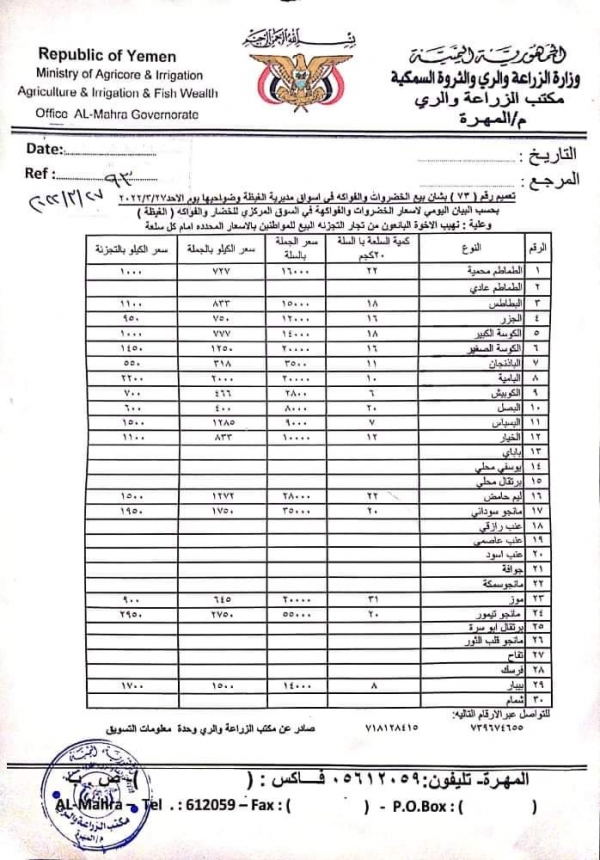 بسم الله الرحمن الرحيم
Republic of Yemen
Ministry of Agricore & Irrigation
Agriculture & Irrigation & Fish Wealth
Office AL-Mahra Governorate
الجمهورية اليمنية
وزارة الزراعة والري والثروة السمكية
مكتب الزراعة والري
م/المهرة
Date:
Ref : ٩٣
٢٠٢٢/٣/٢٧
التاريخ :
المرجع :
تعميم رقم ( ٧٣ ) بشان بيع الخضروات والفواكه في اسواق مديرية الغيظة وضواحيها يوم الاحد ٢٠٢٢/٣/٢٧
بحسب البيان اليومي لاسعار الخضروات والفواكهة في السوق المركزي للخضار والفواكه ( الغيظة )
وعلية : نهيب الاخوة البائعون من تجار التجزئه البيع للمواطنين بالاسعار المحدده امام كل سلعة
الرقم النوع كمية السلعة با السلة ٢٠كجم سعر الجملة بالسلة سعر الكيلو بالجملة سعر الكيلو بالتجزئة
١ الطماطم محمية ٢٢ ١٦٠٠٠ ٧٢٧ ١٠٠٠
٢ الطماطم عادي
٣ البطاطس ١٨ ١٥٠٠٠ ٨٣٣ ١١٠٠
٤ الجزر ١٦ ١٢٠٠٠ ٧٥٠ ٩٥٠
٥ الكوسة الكبير ١٨ ١٤٠٠٠ ٧٧٧ ١٠٠٠
٦ الكوسة الصغير ١٦ ٢٠٠٠٠ ١٢٥٠ ١٤٥٠
٧ الباذنجان ١١ ٣٥٠٠ ٣١٨ ٥٥٠
٨ البامية ١٠ ٢٠٠٠٠ ٢٠٠٠ ٢٢٠٠
٩ الكوبيش ٦ ٢٨٠٠ ٤٦٦ ٧٠٠
١٠ البصل ٢٠ ٨٠٠٠ ٤٠٠ ٦٠٠
١١ البسباس ٧ ٩٠٠٠ ١٢٨٥ ١٥٠٠
١٢ الخيار ١٢ ١٠٠٠٠ ٨٣٣ ١١٠٠
١٣ باباي
١٤ يوسفي محلي
١٥ برتقال محلي
١٦ ليم حامض ٢٢ ٢٨٠٠٠ ١٢٧٢ ١٥٠٠
١٧ مانجو سوداني ٢٠ ٣٥٠٠٠ ١٧٥٠ ١٩٥٠
١٨ عنب رازقي
١٩ عنب عاصمي
٢٠ عنب اسود
٢١ جوافة
٢٢ مانجوسمكة
٢٣ موز ٣١ ٢٠٠٠٠ ٦٤٥ ٩٠٠
٢٤ مانجو تيمور ٢٠ ٥٥٠٠٠ ٢٧٥٠ ٢٩٥٠
٢٥ برتقال ابو سرة
٢٦ مانجو قلب الثور
٢٧ تفاح
٢٨ فرسك
٢٩ بيبار ٨ ١٤٠٠٠ ١٥٠٠ ١٧٠٠
٣٠ شمام
للتواصل عبر الارقام التاليه:
٧٣٩٦٧٤٦٥٥ ٧١٨١٢٨٤١٥ صادر عن مكتب الزراعة والري وحدة معلومات التسويق
المهرة- تليفون: ٠٥٦١٢٠٥٩ فاكس : ( ) ص ب
AL-Mahra – Tel . : 612059 – Fax : ( ) - P.O.Box : ( )
مكتب الزراعة والري
م/المهرة